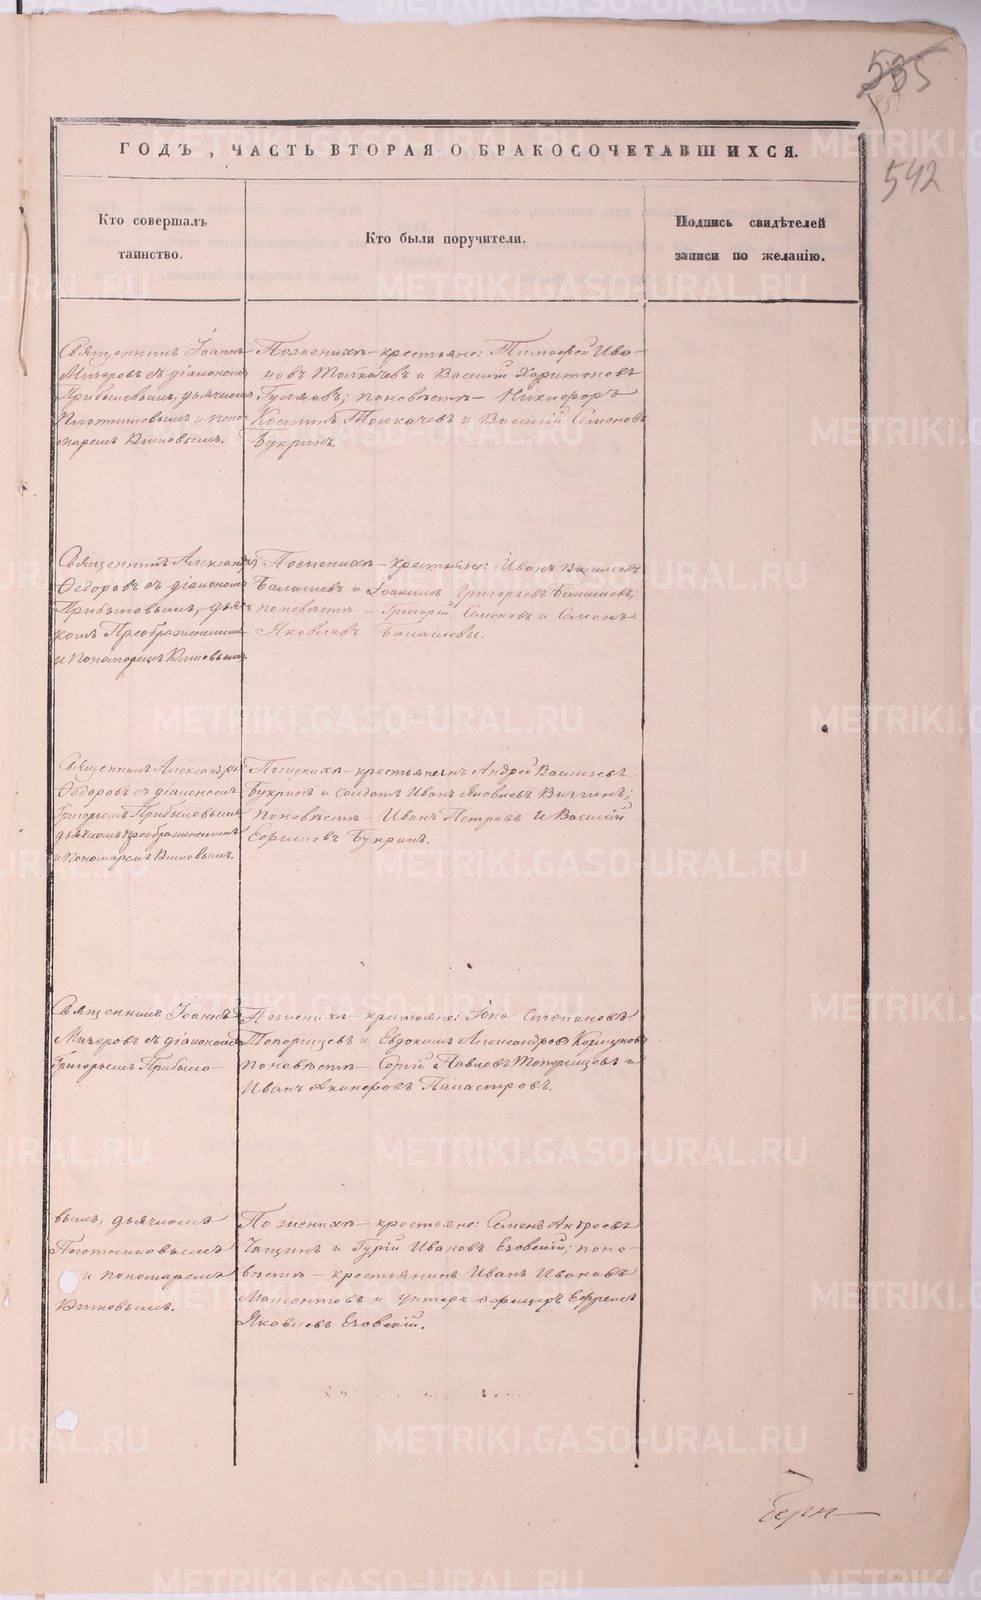 535
542
ГОДЪ, ЧАСТЬ ВТОРАЯ О БРАКОСОЧЕТАВШИХСЯ.
Кто совершалъ
таинство.
Кто были поручители.
Подпись свидѣтелей
записи по желанію.
Священникъ Іоаннъ
Мизеровъ съ діакономъ
Прибыловымъ, дьячкомъ
Плотниковымъ и поно-
маремъ
По женихѣ – крестьяне: Тимофей Ива-
новъ Толкачевъ и Василій Харитоновъ
по невѣстѣ – Никифоръ
Толкачевъ и Василій Семеновъ
Букринъ.
Священникъ Александръ
Ѳедоровъ съ діакономъ
Прибыловымъ, дьяч-
комъ Преображенскимъ
и пономаремъ
По женихѣ – крестьяне: Иванъ Васильевъ
Балашевъ и Іоакимъ Григорьевъ Балашевъ;
по невѣстѣ – Григорій Семеновъ и Семенъ
Яковлевъ Балашевы.
Священникъ Александръ
Ѳедоровъ съ діакономъ
Григорьемъ Прибыловымъ
дьячкомъ Преображенскимъ
и пономаремъ
По женихѣ – крестьянинъ Андрей Васильевъ
Букринъ и солдатъ Иванъ Яковлевъ
по невѣстѣ – Иванъ Петровъ и Василій
Ефимовъ Букринъ.
Священникъ Іоаннъ
Мизеровъ съ діакономъ
Григорьемъ Прибыло-
По женихѣ – крестьяне: Іона Степановъ
Топорищевъ и Евдокимъ Александровъ
по невѣстѣ – Сергій Павловъ Топорищевъ и
Иванъ
вымъ, дьячкомъ
Плотниковымъ
и пономаремъ
По женихѣ – крестьяне: Семенъ Андреевъ
и Гурій Ивановъ Еховскій; по не-
вѣстѣ – крестьянинъ Иванъ Ивановъ
и унтеръ офицеръ Ефремъ
Яковлевъ Еховскій.
METRIKI.GASO-URAL.RU